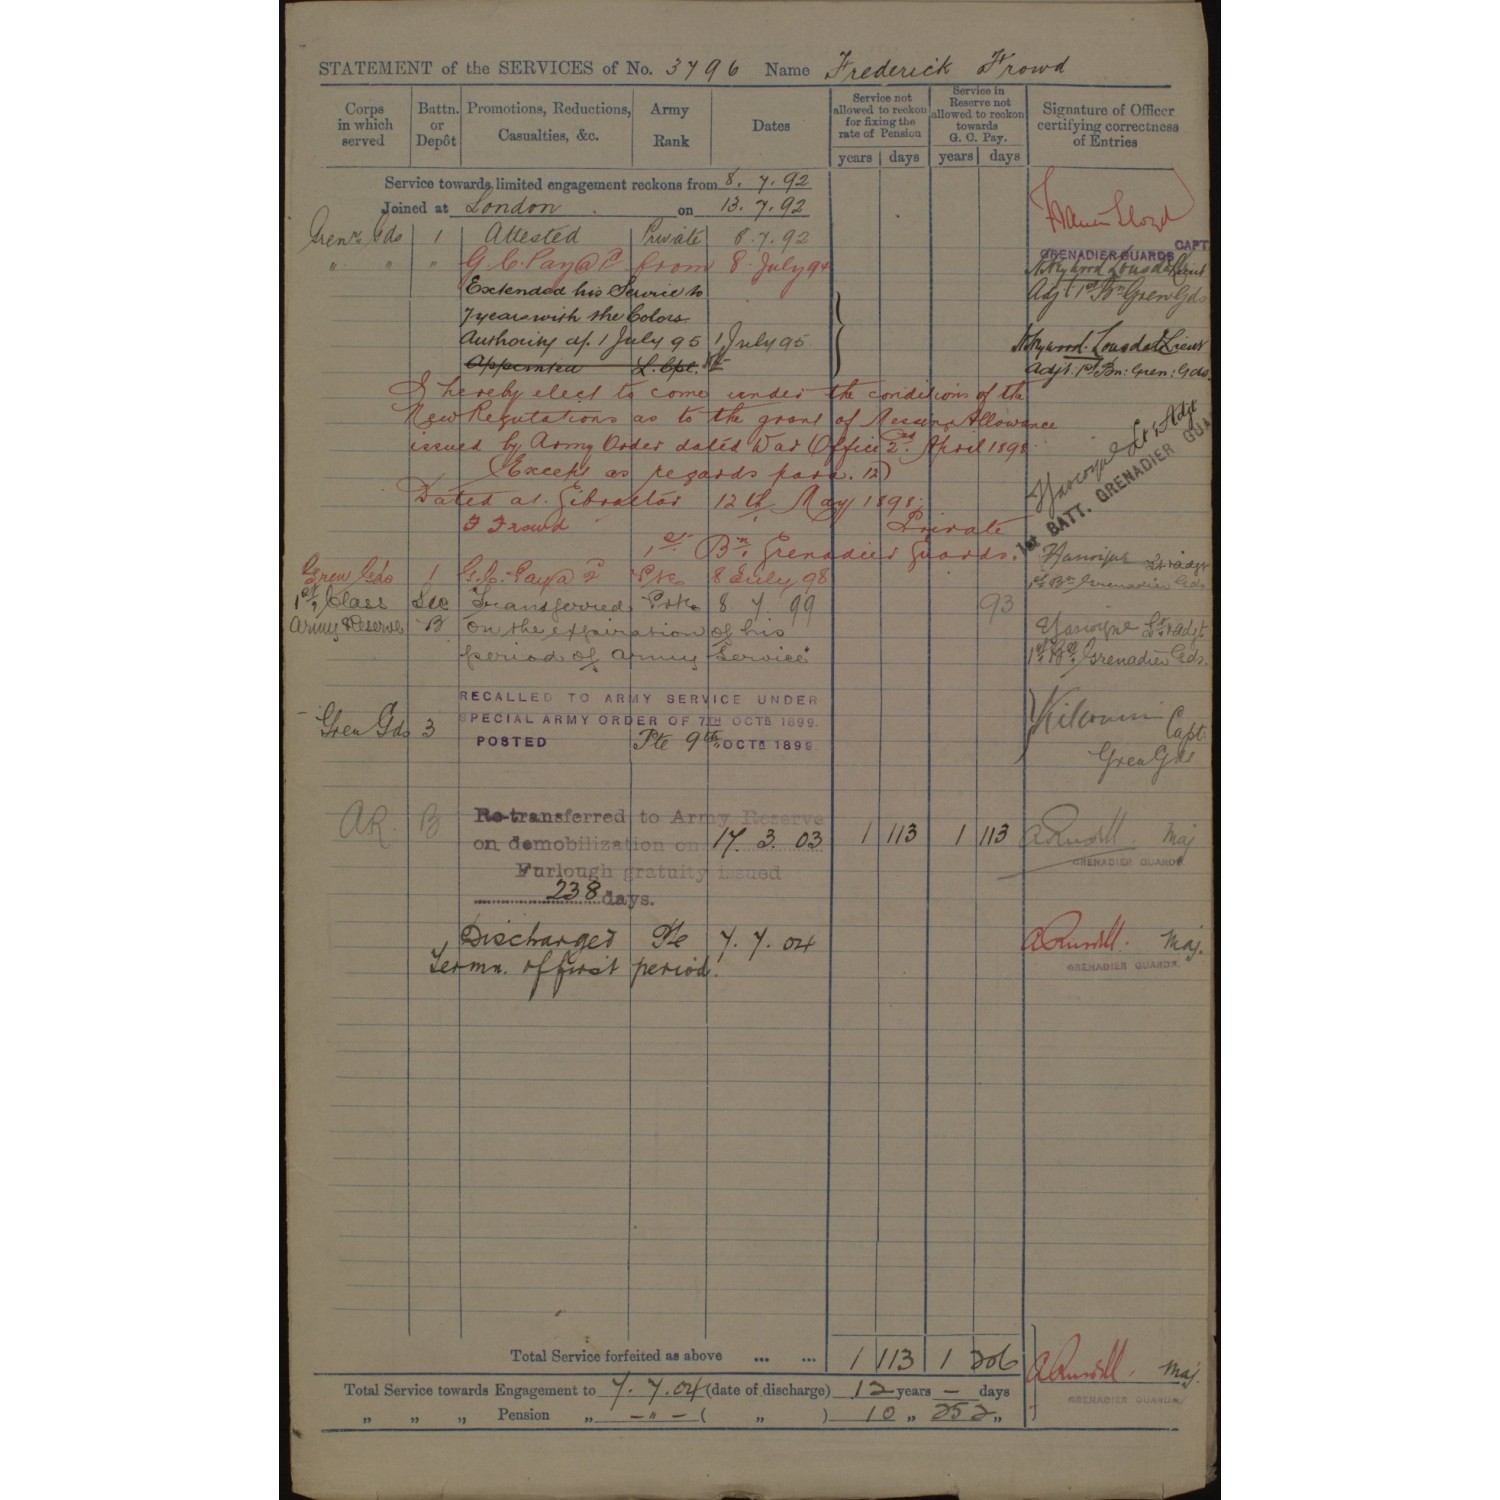 STATEMENT of the SERVICES of No. 3796 Name Frederick Frowd
Corps in which served
Battn. or Depôt
Promotions, Reductions, Casualties, &c.
Army Rank
Dates
Service not allowed to reckon for fixing the rate of Pension
Service in Reserve not allowed to reckon towards G. C. Pay.
Signature of Officer certifying correctness of Entries
years days years days
Service towards limited engagement reckons from 8. 7. 92
Joined at London on 13. 7. 92
Francis Lloyd
Gren. Gds 1 Attested Private 8. 7. 92
CAPT
GRENADIER GUARDS
" " " G. C. Pay @ 1d from 8 July 94
Lieut
Adjt 1st Bn Gren Gds
Extended his Service to
7 years with the Colors
Authority of 1 July 95 1 July 95
Lieut
Appointed L. Cpl.
Adjt. 1st Bn: Gren: Gds.
I hereby elect to come under the conditions of the
New Regulations as to the grant of Messing Allowance
issued by Army Order dated War Office 2nd April 1898
(Except as regards para. 12)
Dated at Gibraltar 12th May 1898;
Gascoigne Lt & Adjt
1st BATT. GRENADIER GUA
F Frowd Private
1st Bn. Grenadier Guards.
Gren Gds 1 G.C. Pay @ 2d Pte 8 July 98
Gascoigne Lt & Adjt
1st Bn Grenadier Gds
1st Class Sec Transferred Pte 8 7 99 93
Army Reserve B on the expiration of his
Gascoigne Lt & Adjt
period of Army Service
1st Bn Grenadier Gds.
RECALLED TO ARMY SERVICE UNDER
SPECIAL ARMY ORDER OF 7TH OCTR 1899.
Gren Gds 3 POSTED Pte 9th OCTR 1899
Capt
Gren Gds
AR. B Re-transferred to Army Reserve
on demobilization on 17. 3. 03 1 113 1 113
Maj
GRENADIER GUARDS.
Furlough gratuity issued
238 days.
Discharged Pte 7. 7. 04
Maj.
GRENADIER GUARDS.
Termn. of first period.
Total Service forfeited as above ... ... 1 113 1 206
Maj.
GRENADIER GUARDS
Total Service towards Engagement to 7. 7. 04 (date of discharge) 12 years — days
„ „ „ Pension „ — " — ( „ ) 10 „ 252 „